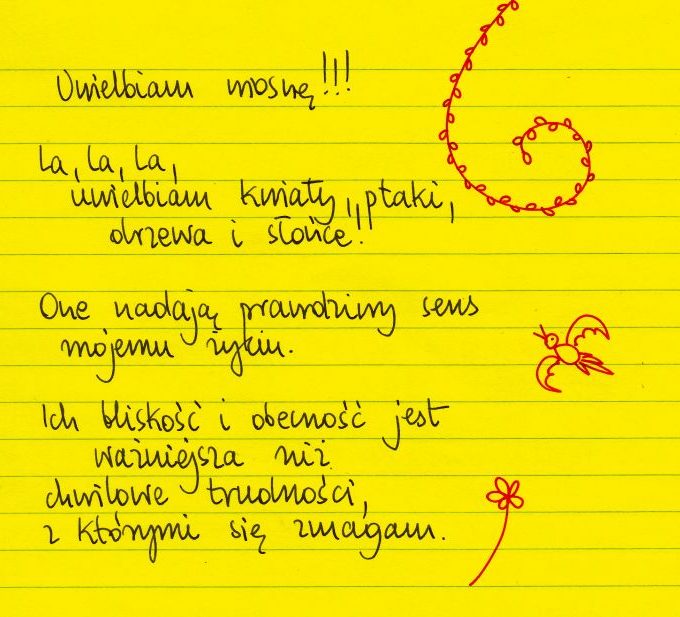 Uwielbiam wiosnę!!!
La, La, La,
uwielbiam kwiaty, ptaki,
drzewa i słońce!!
One nadają prawdziwy sens
mojemu życiu.
Ich bliskość i obecność jest
ważniejsza niż
chwilowe trudności,
z którymi się zmagam.